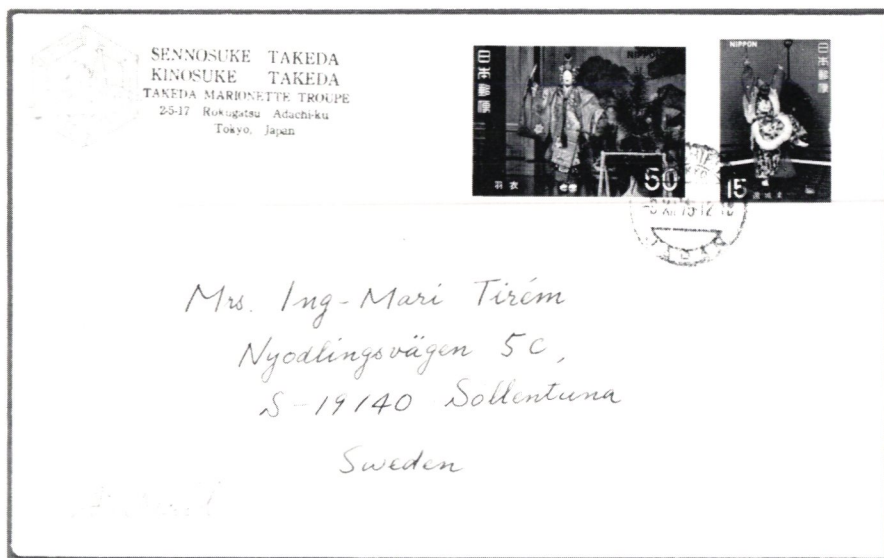 SENNOSUKE TAKEDA
KINOSUKE TAKEDA
TAKEDA MARIONETTE TROUPE
2-5-17 Rokugatsu Adachi-ku
Tokyo, Japan
日本郵便
NIPPON
羽衣
50
NIPPON
日本郵便
15
Mrs. Ing-Mari Tirém
Nyodlingsvägen 5C,
S-19140 Sollentuna
Sweden